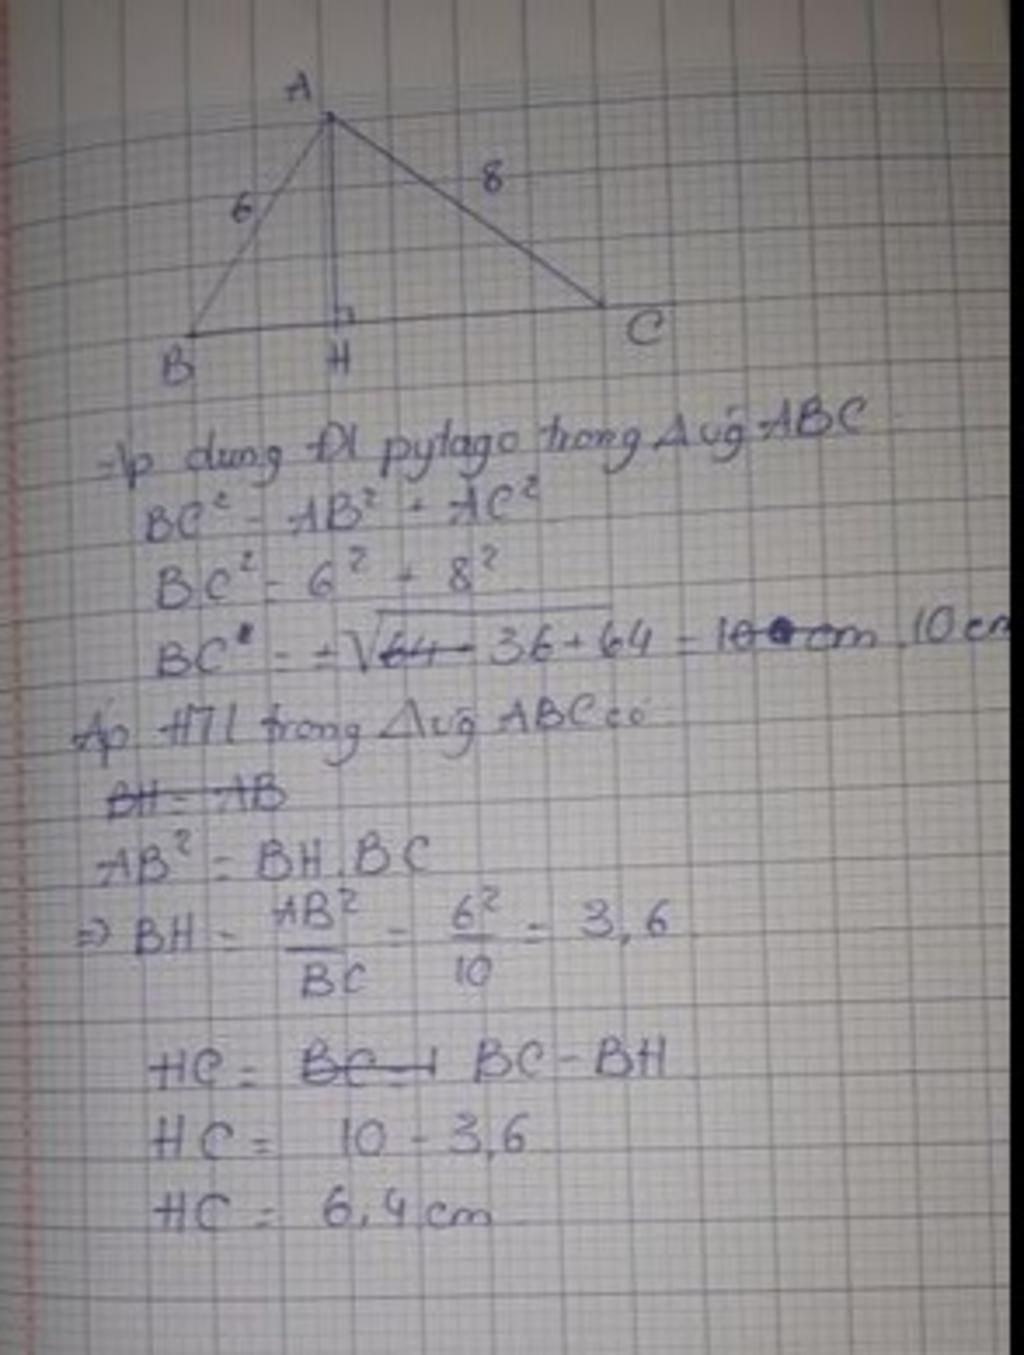 A
6
8
B
H
C
Áp dụng ĐL pytago trong Δvg ABC
BC² = AB² + AC²
BC² = 6² + 8²
BC = ±√36+64 = 10cm
Áp HTL trong Δvg ABC có
BH = AB
AB² = BH.BC
⇒ BH = AB²/BC = 6²/10 = 3,6
HC = BC - BH
HC = 10 - 3,6
HC = 6,4cm